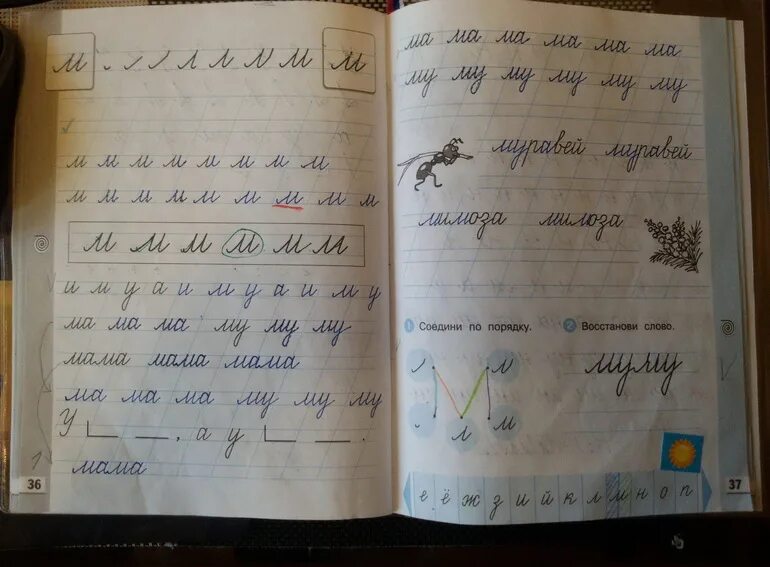 м м м
м м м м м м м м
м м м м м м м м м
м м м м м м
и м у а и м у а и м у
ма ма ма му му му
мама мама мама
ма ма ма му му му
У , а у .
мама
36
ма ма ма ма ма ма
му му му му му му
муравей муравей
мимоза мимоза
1 Соедини по порядку. 2 Восстанови слово.
муму
л м
л м
е ё ж з и й к л м н о п
37